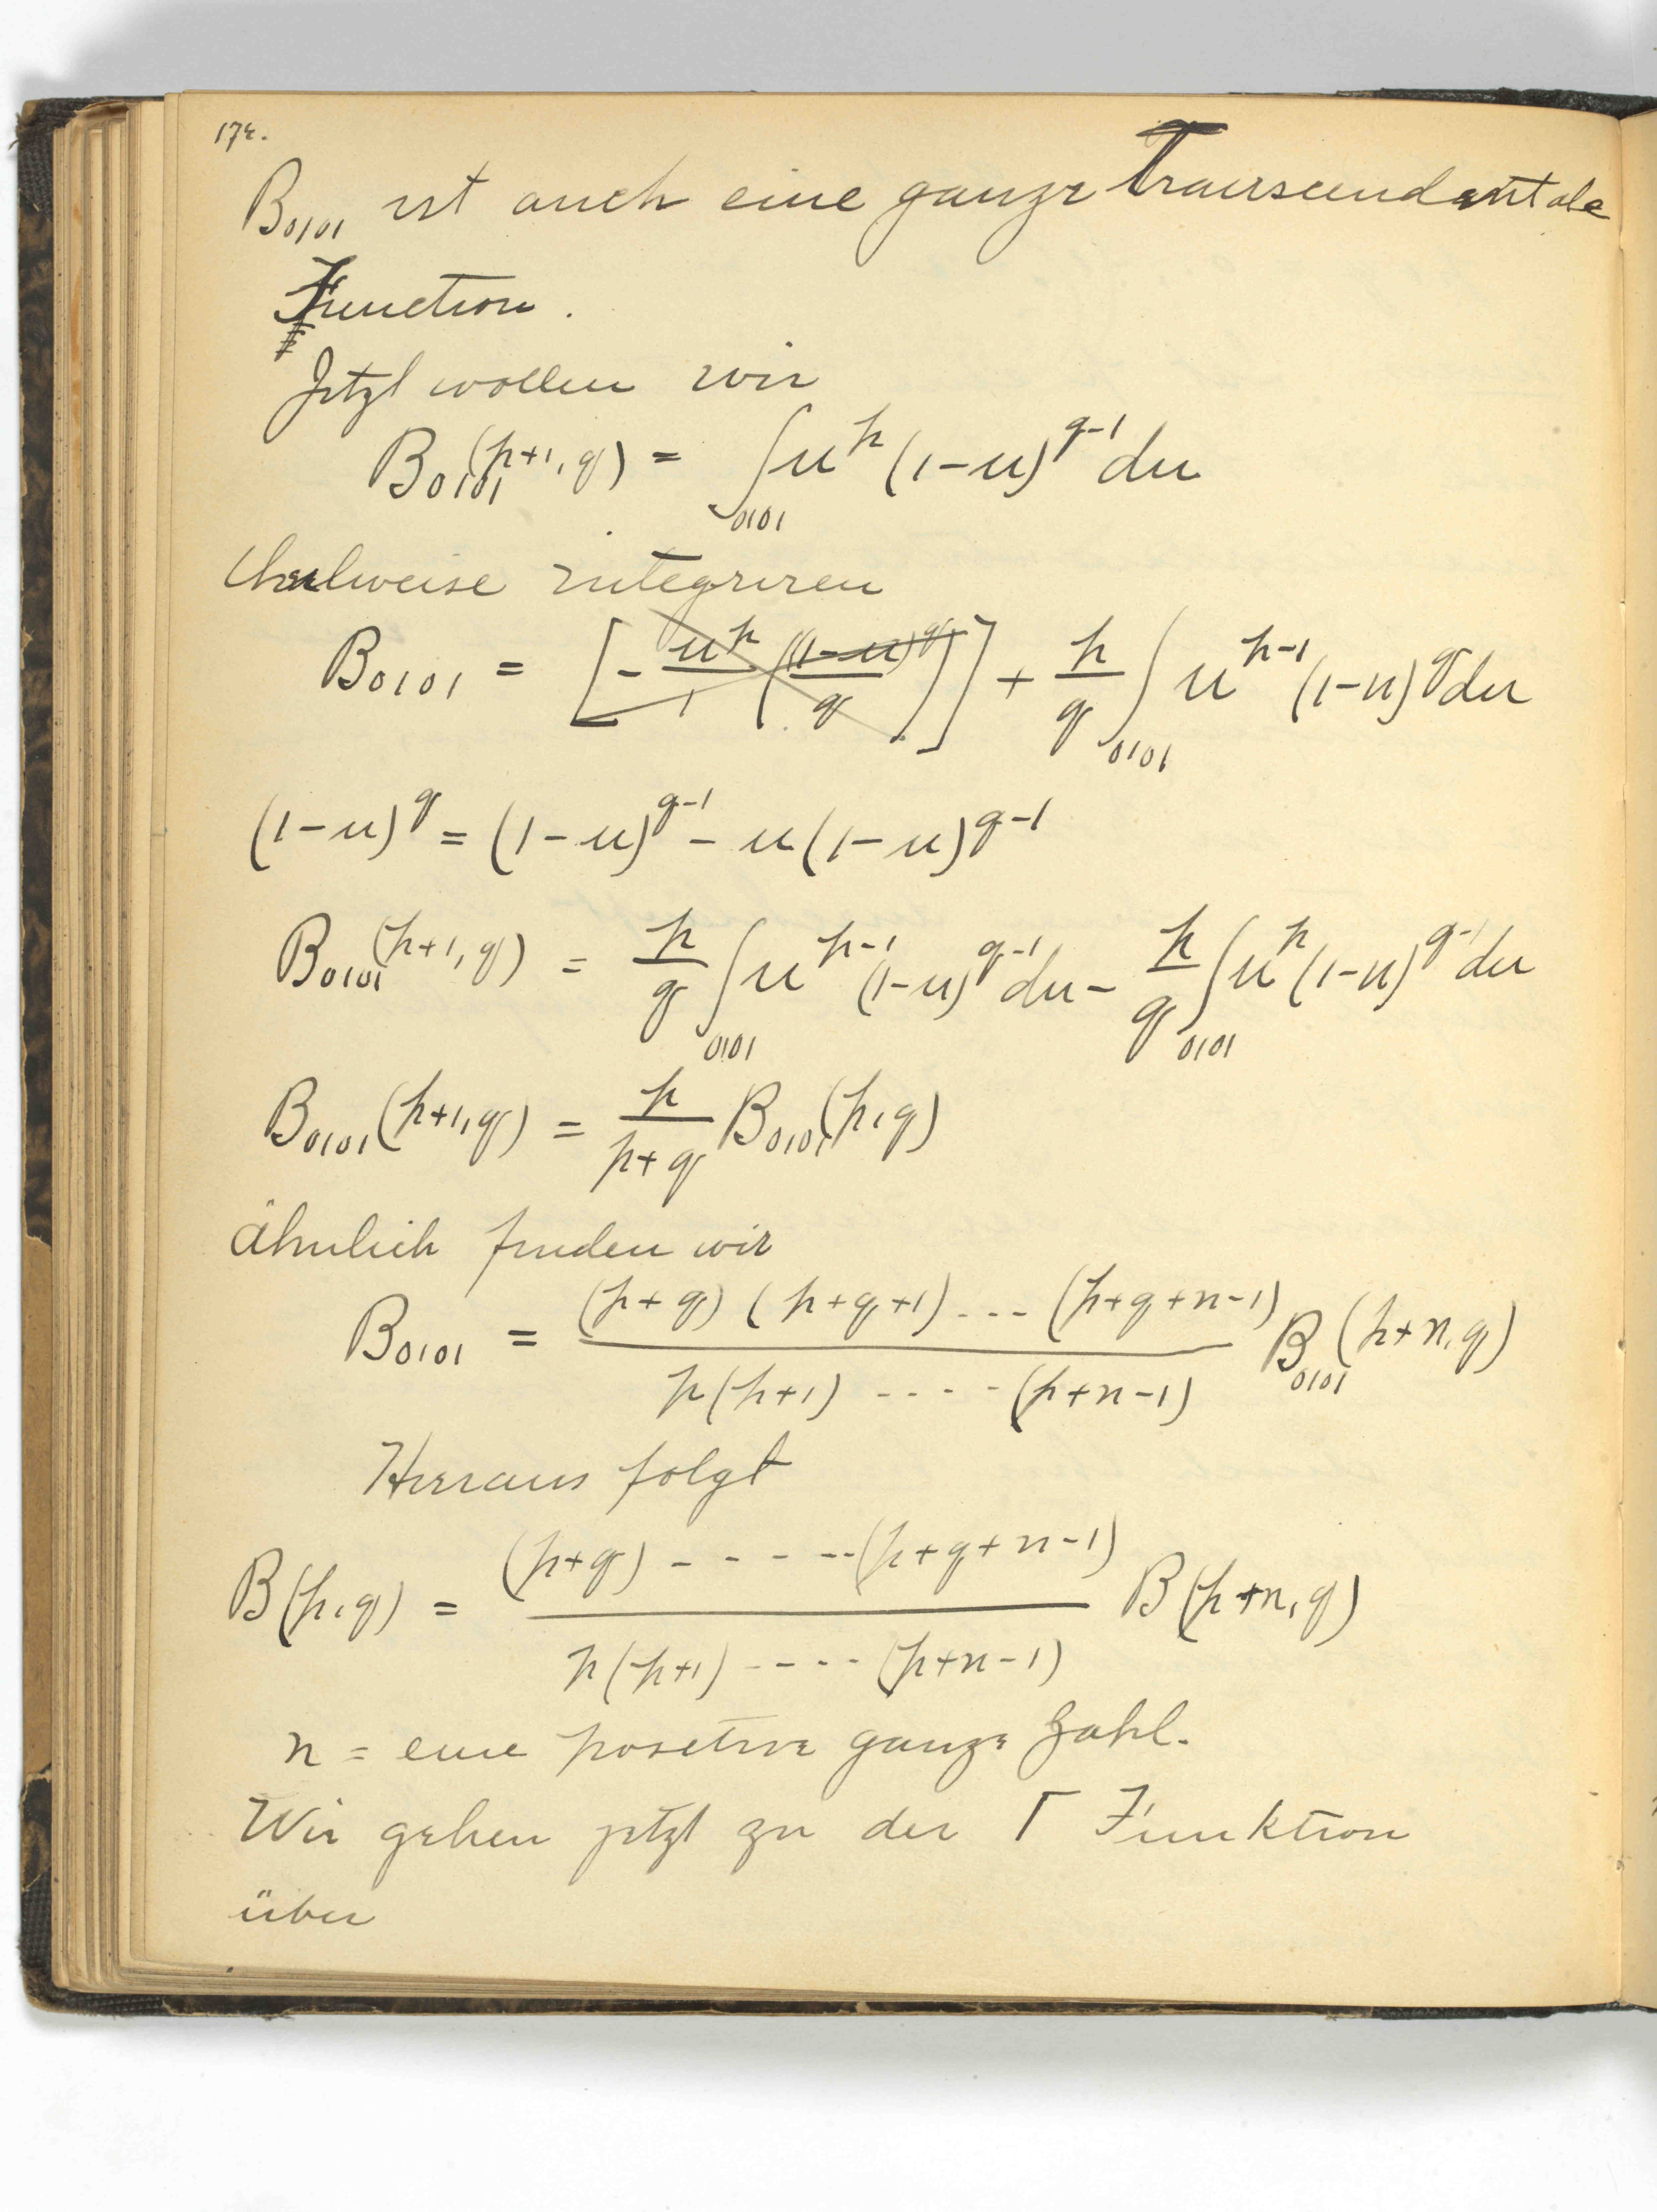 174.
B₀₁₀₁ ist auch eine ganze Transcendentale
Function.
Jetzt wollen wir
B₀₁₀₁(p+1, q) = ∫₀₁₀₁ u^p (1-u)^{q-1} du
theilweise integriren
B₀₁₀₁ = [- u^p/1 ((1-u)^q/q)] + p/q ∫₀₁₀₁ u^{p-1} (1-u)^q du
(1-u)^q = (1-u)^{q-1} - u(1-u)^{q-1}
B₀₁₀₁(p+1, q) = p/q ∫₀₁₀₁ u^{p-1} (1-u)^{q-1} du - p/q ∫₀₁₀₁ u^p (1-u)^{q-1} du
B₀₁₀₁(p+1, q) = p/(p+q) B₀₁₀₁(p, q)
ähnlich finden wir
B₀₁₀₁ = (p+q)(p+q+1)...(p+q+n-1) / p(p+1) ---- (p+n-1) B₀₁₀₁(p+n, q)
Hieraus folgt
B(p, q) = (p+q) ----- (p+q+n-1) / p(p+1) ---- (p+n-1) B(p+n, q)
n = eine positive ganze Zahl.
Wir gehen jetzt zu der Γ Funktion
über